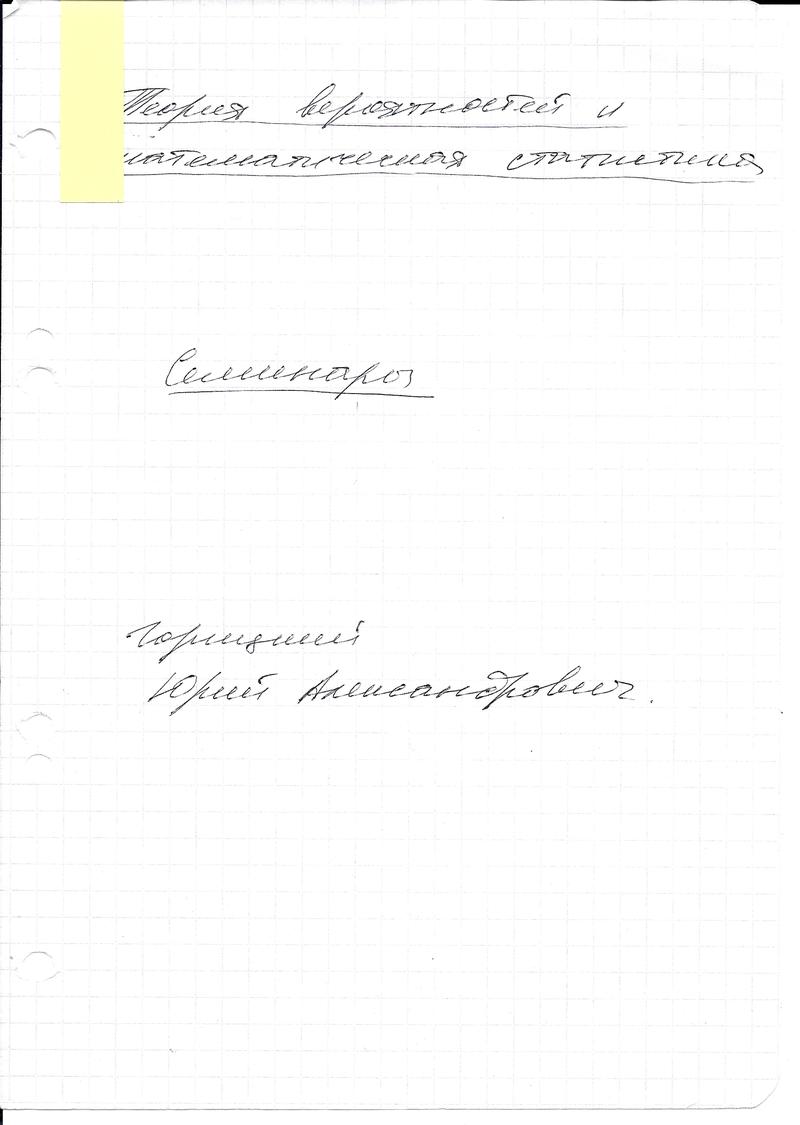 Теория вероятностей и
математическая статистика
Семинары
Горицкий
Юрий Александрович.